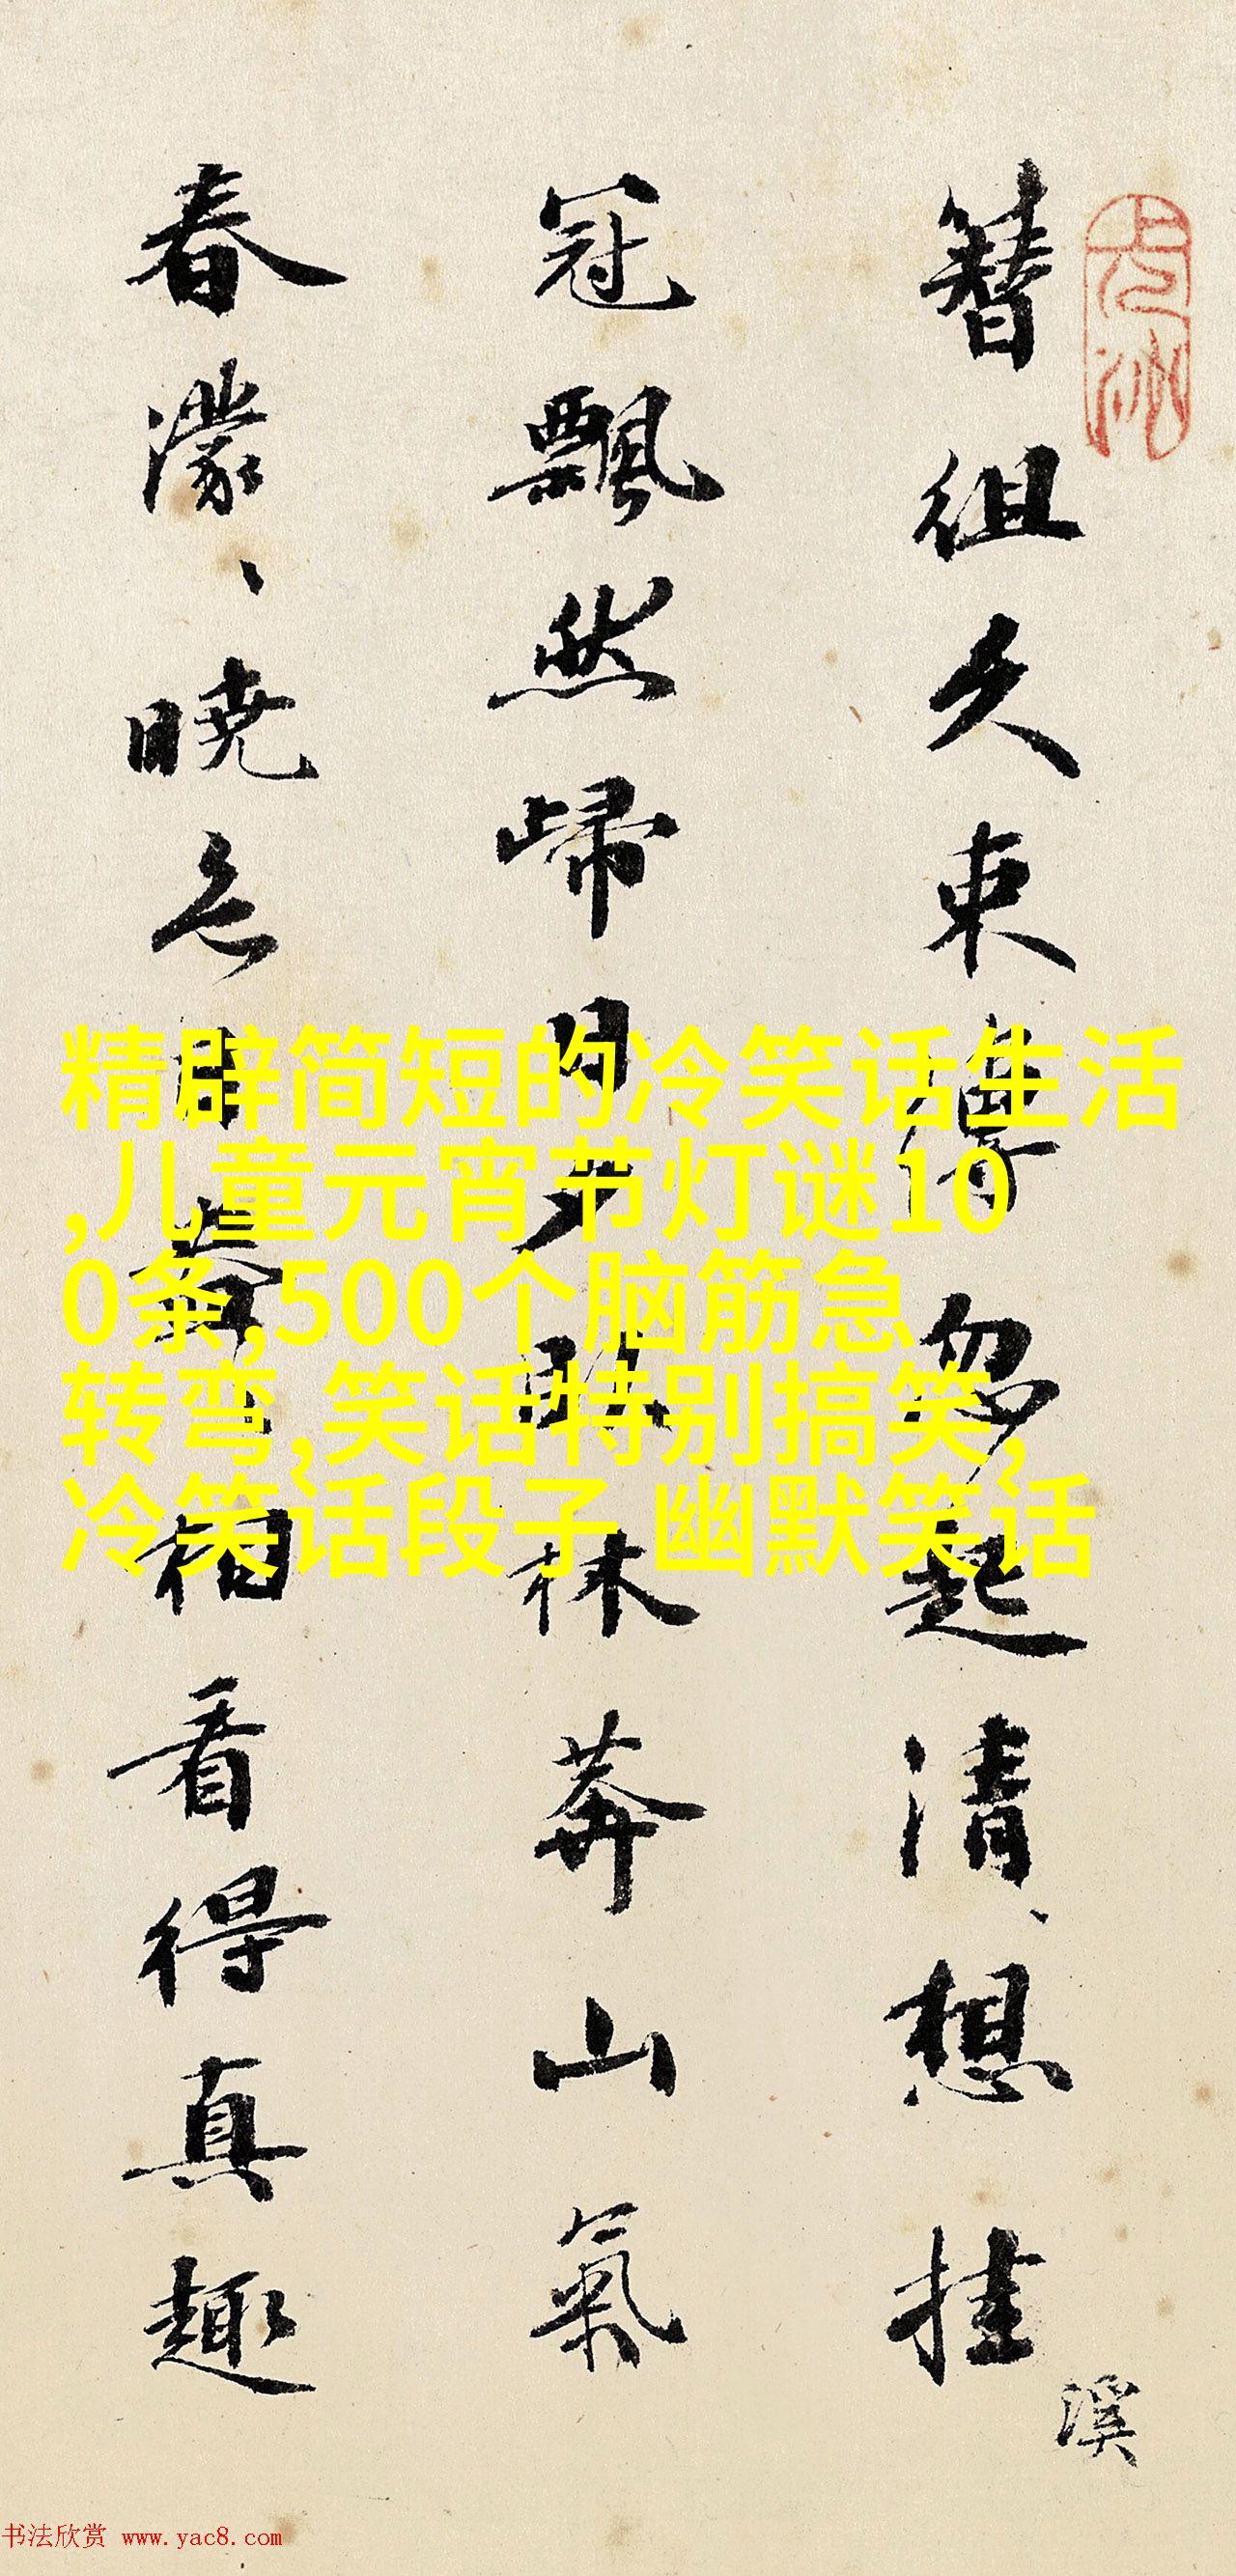 簪組久束忽起清、想挂
溪
冠飄然歸日夕林莽山氣
春濛、曉相看得真趣
精辟简短的冷笑话生活
,儿童元宵节灯谜10
0条,500个脑筋急
转弯,笑话特别搞笑,
冷笑话段子 幽默笑话
书法欣赏 www.yac8.com